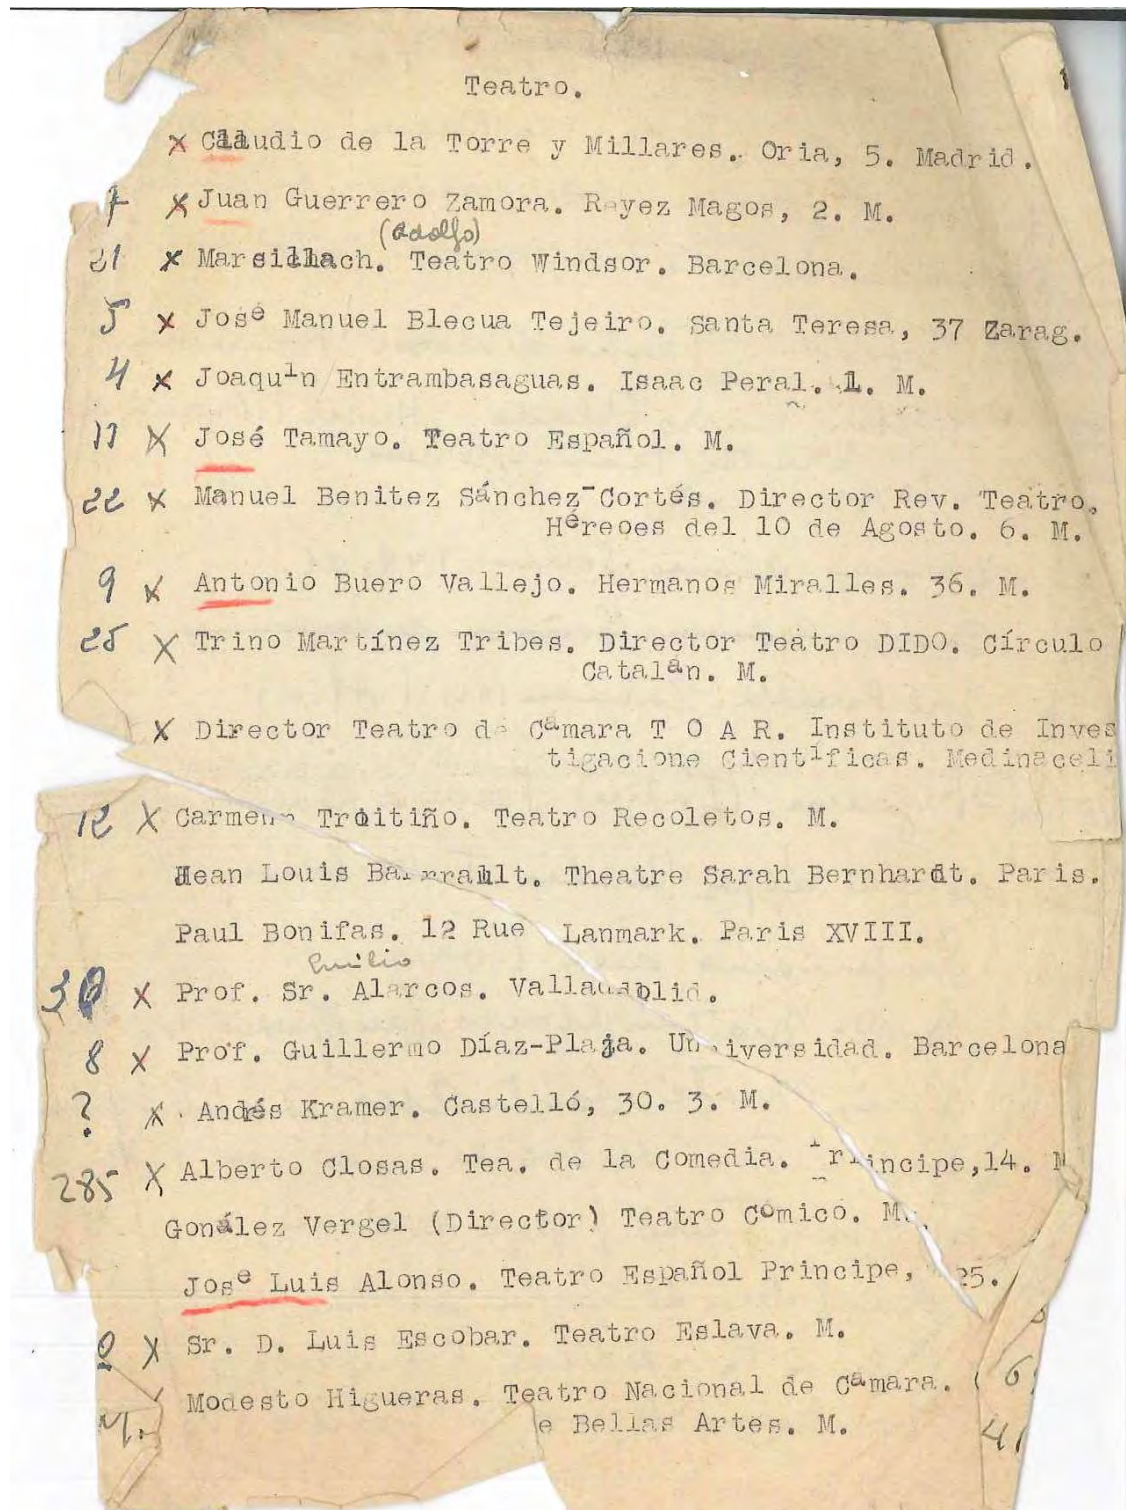 Teatro.
x Claudio de la Torre y Millares. Oria, 5. Madrid.
7 x Juan Guerrero Zamora. Reyez Magos, 2. M.
(Adolfo)
21 x Marsillach. Teatro Windsor. Barcelona.
5 x José Manuel Blecua Tejeiro. Santa Teresa, 37 Zarag.
4 x Joaquín Entrambasaguas. Isaac Peral. 1. M.
11 x José Tamayo. Teatro Español. M.
22 x Manuel Benitez Sánchez-Cortés. Director Rev. Teatro.
Héreoes del 10 de Agosto. 6. M.
9 x Antonio Buero Vallejo. Hermanos Miralles. 36. M.
25 x Trino Martínez Tribes. Director Teatro DIDO. Círculo
Catalán. M.
x Director Teatro de Cámara T O A R. Instituto de Inves
tigacione Científicas. Medinaceli
12 x Carmen Troitiño. Teatro Recoletos. M.
Jean Louis Barrault. Theatre Sarah Bernhardt. Paris.
Paul Bonifas. 12 Rue Lanmark. Paris XVIII.
Emilio
30 x Prof. Sr. Alarcos. Valladolid.
8 x Prof. Guillermo Díaz-Plaja. Universidad. Barcelona
? x Andrés Kramer. Castelló, 30. 3. M.
285 x Alberto Closas. Tea. de la Comedia. Principe,14. M
Gonález Vergel (Director) Teatro Cómico. M.
José Luis Alonso. Teatro Español Principe, 25.
x Sr. D. Luis Escobar. Teatro Eslava. M.
Modesto Higueras. Teatro Nacional de Cámara. 6
e Bellas Artes. M. 41